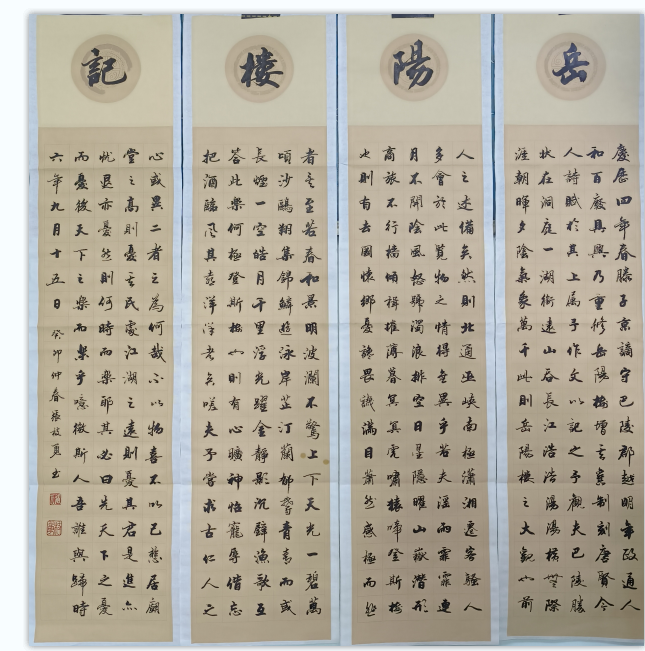 岳
慶曆四年春滕子京謫守巴陵郡越明年政通人
和百廢具興乃重修岳陽樓增其舊制刻唐賢今
人詩賦於其上属予作文以記之予觀夫巴陵勝
狀在洞庭一湖銜遠山吞長江浩浩湯湯橫無際
涯朝暉夕陰氣象萬千此則岳陽樓之大觀也前
陽
人之述備矣然則北通巫峽南極瀟湘遷客騷人
多會於此覽物之情得無異乎若夫淫雨霏霏連
月不開陰風怒號濁浪排空日星隱曜山嶽潛形
商旅不行檣傾楫摧薄暮冥冥虎嘯猿啼登斯樓
也則有去國懷鄉憂讒畏譏滿目蕭然感極而悲
楼
者矣至若春和景明波瀾不驚上下天光一碧萬
頃沙鷗翔集錦鱗游泳岸芷汀蘭郁郁青青而或
長煙一空皓月千里浮光躍金靜影沉璧漁歌互
答此樂何極登斯樓也則有心曠神怡寵辱偕忘
把酒臨風其喜洋洋者矣嗟夫予嘗求古仁人之
記
心或異二者之為何哉不以物喜不以己悲居廟
堂之高則憂其民處江湖之遠則憂其君是進亦
忧退亦憂然則何時而樂耶其必曰先天下之憂
而憂後天下之樂而樂乎噫微斯人吾誰與歸時
六年九月十五日 癸卯仲春張 書